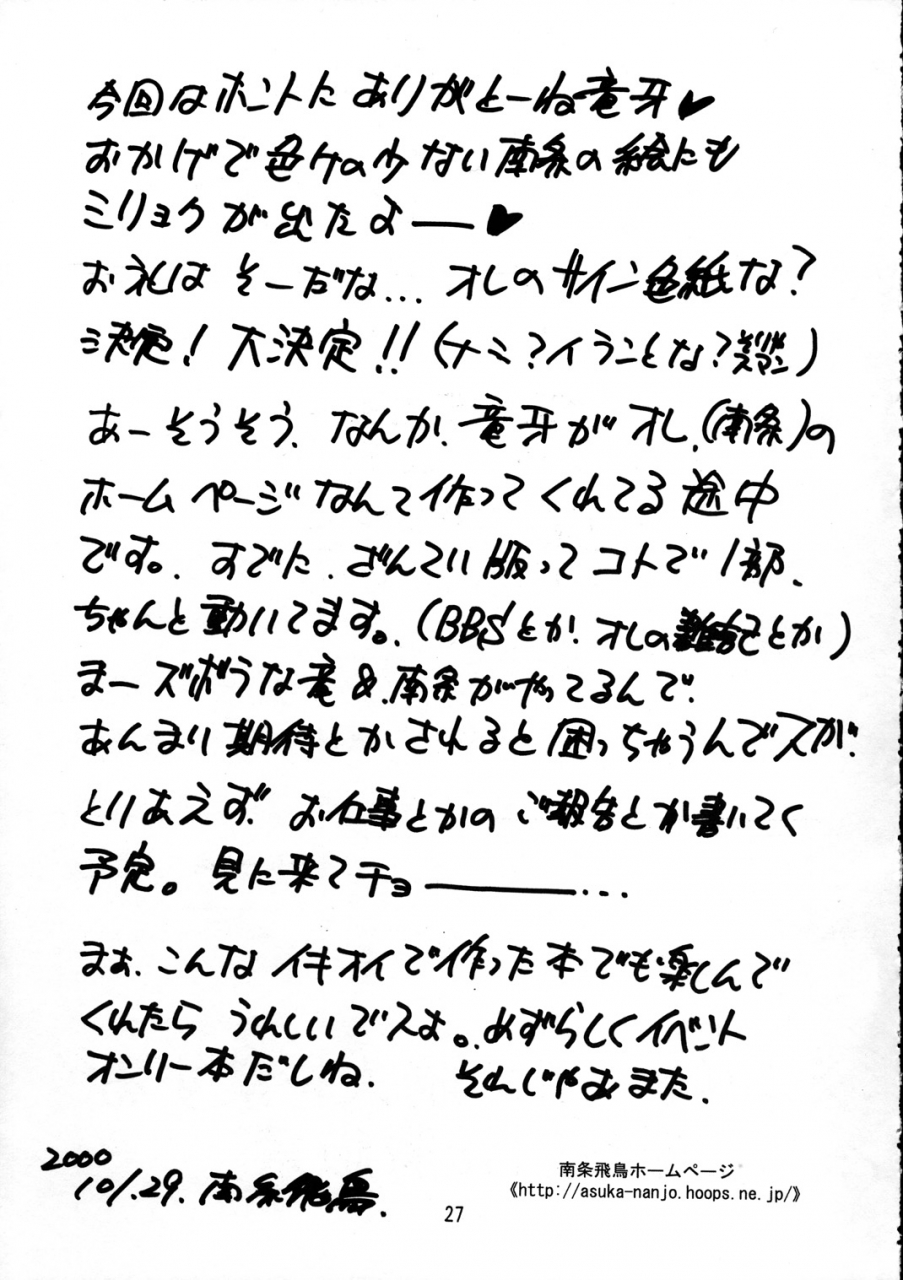 今回はホントにありがとーね竜牙♥
おかげで色ケの少ない南条の絵にも
ミリョクが出たよ――♥
お礼は そーだな… オレのサイン色紙な?
決定! 大決定!!(ナミ?イランとな?)
あーそうそう、なんか、竜牙がオレ、(南条)の
ホームページなんて作ってくれてる途中
です。、すでに、ざんてい版ってコトで1部、
ちゃんと動いてます。、(BBSとか、オレの雑記とか)
まーズボラな竜&南条がやってるんで、
あんまり期待とかされると困っちゃうんでスが、
とりあえず、お仕事とかの ご報告とか書いてく
予定。 見に来てチョ―――…
まぁ、こんな イキオイで作った本でも楽しんで
くれたら うれしいでスよ。、めずらしくイベント
オンリー本だしね、 それじゃあまた、
2000
10/.29. 南条飛鳥.
南条飛鳥ホームページ
《http://asuka-nanjo.hoops.ne.jp/》
27